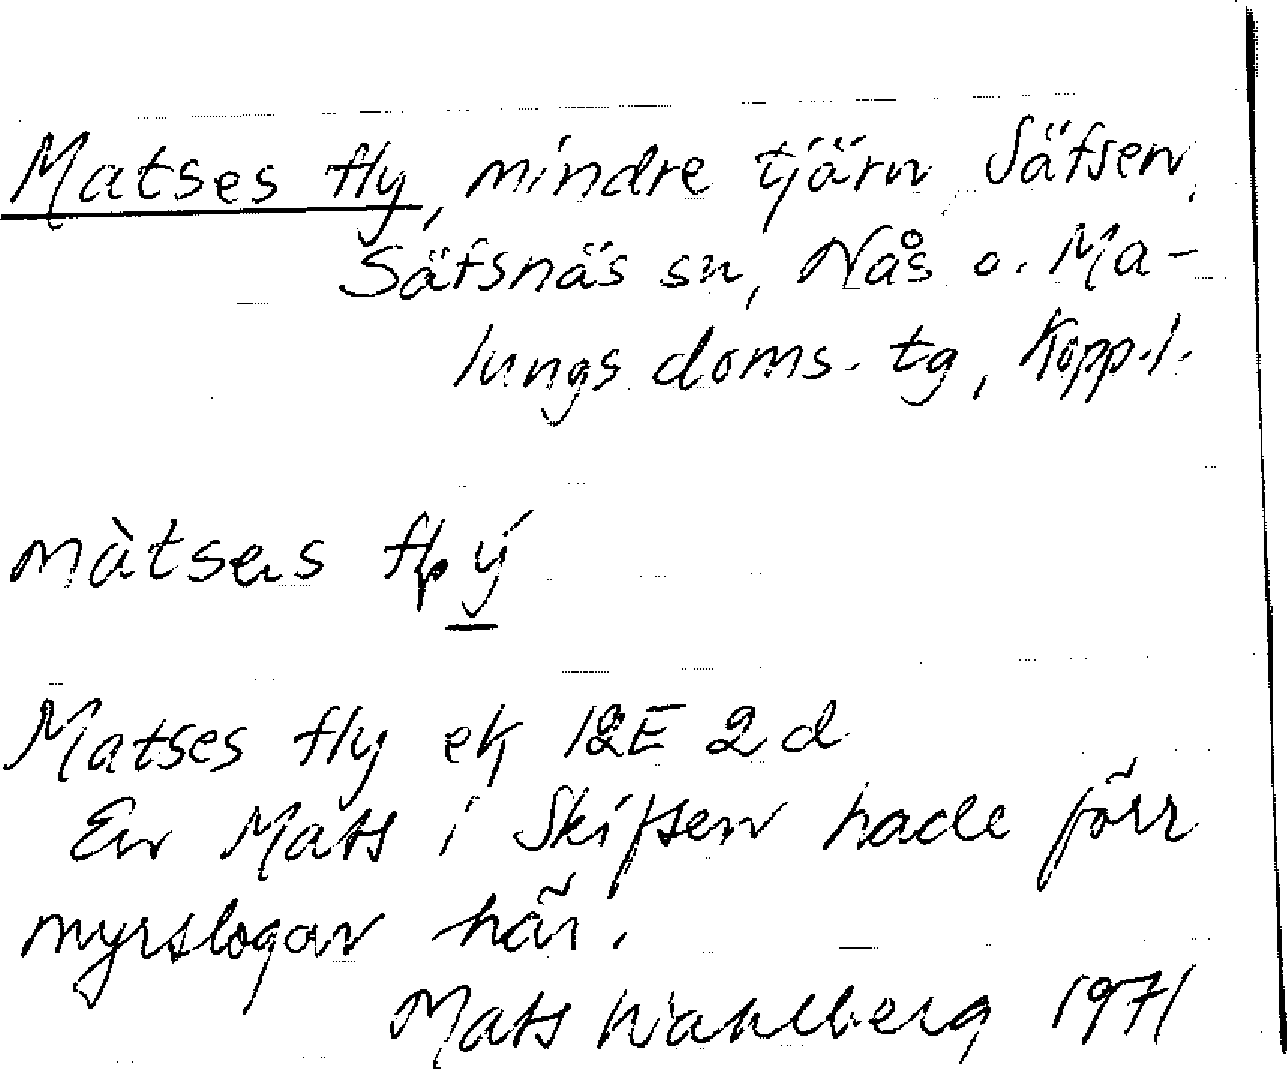 Matses fly, mindre tjärn Säfsen,
Säfsnäs sn, Nås o. Ma-
lungs doms. tg, Kopp. l.
màtses flý
Matses fly ek 12E 2d
En Mats i Skifsen hade förr
myrslogar här.
Mats Wahlberg 1971